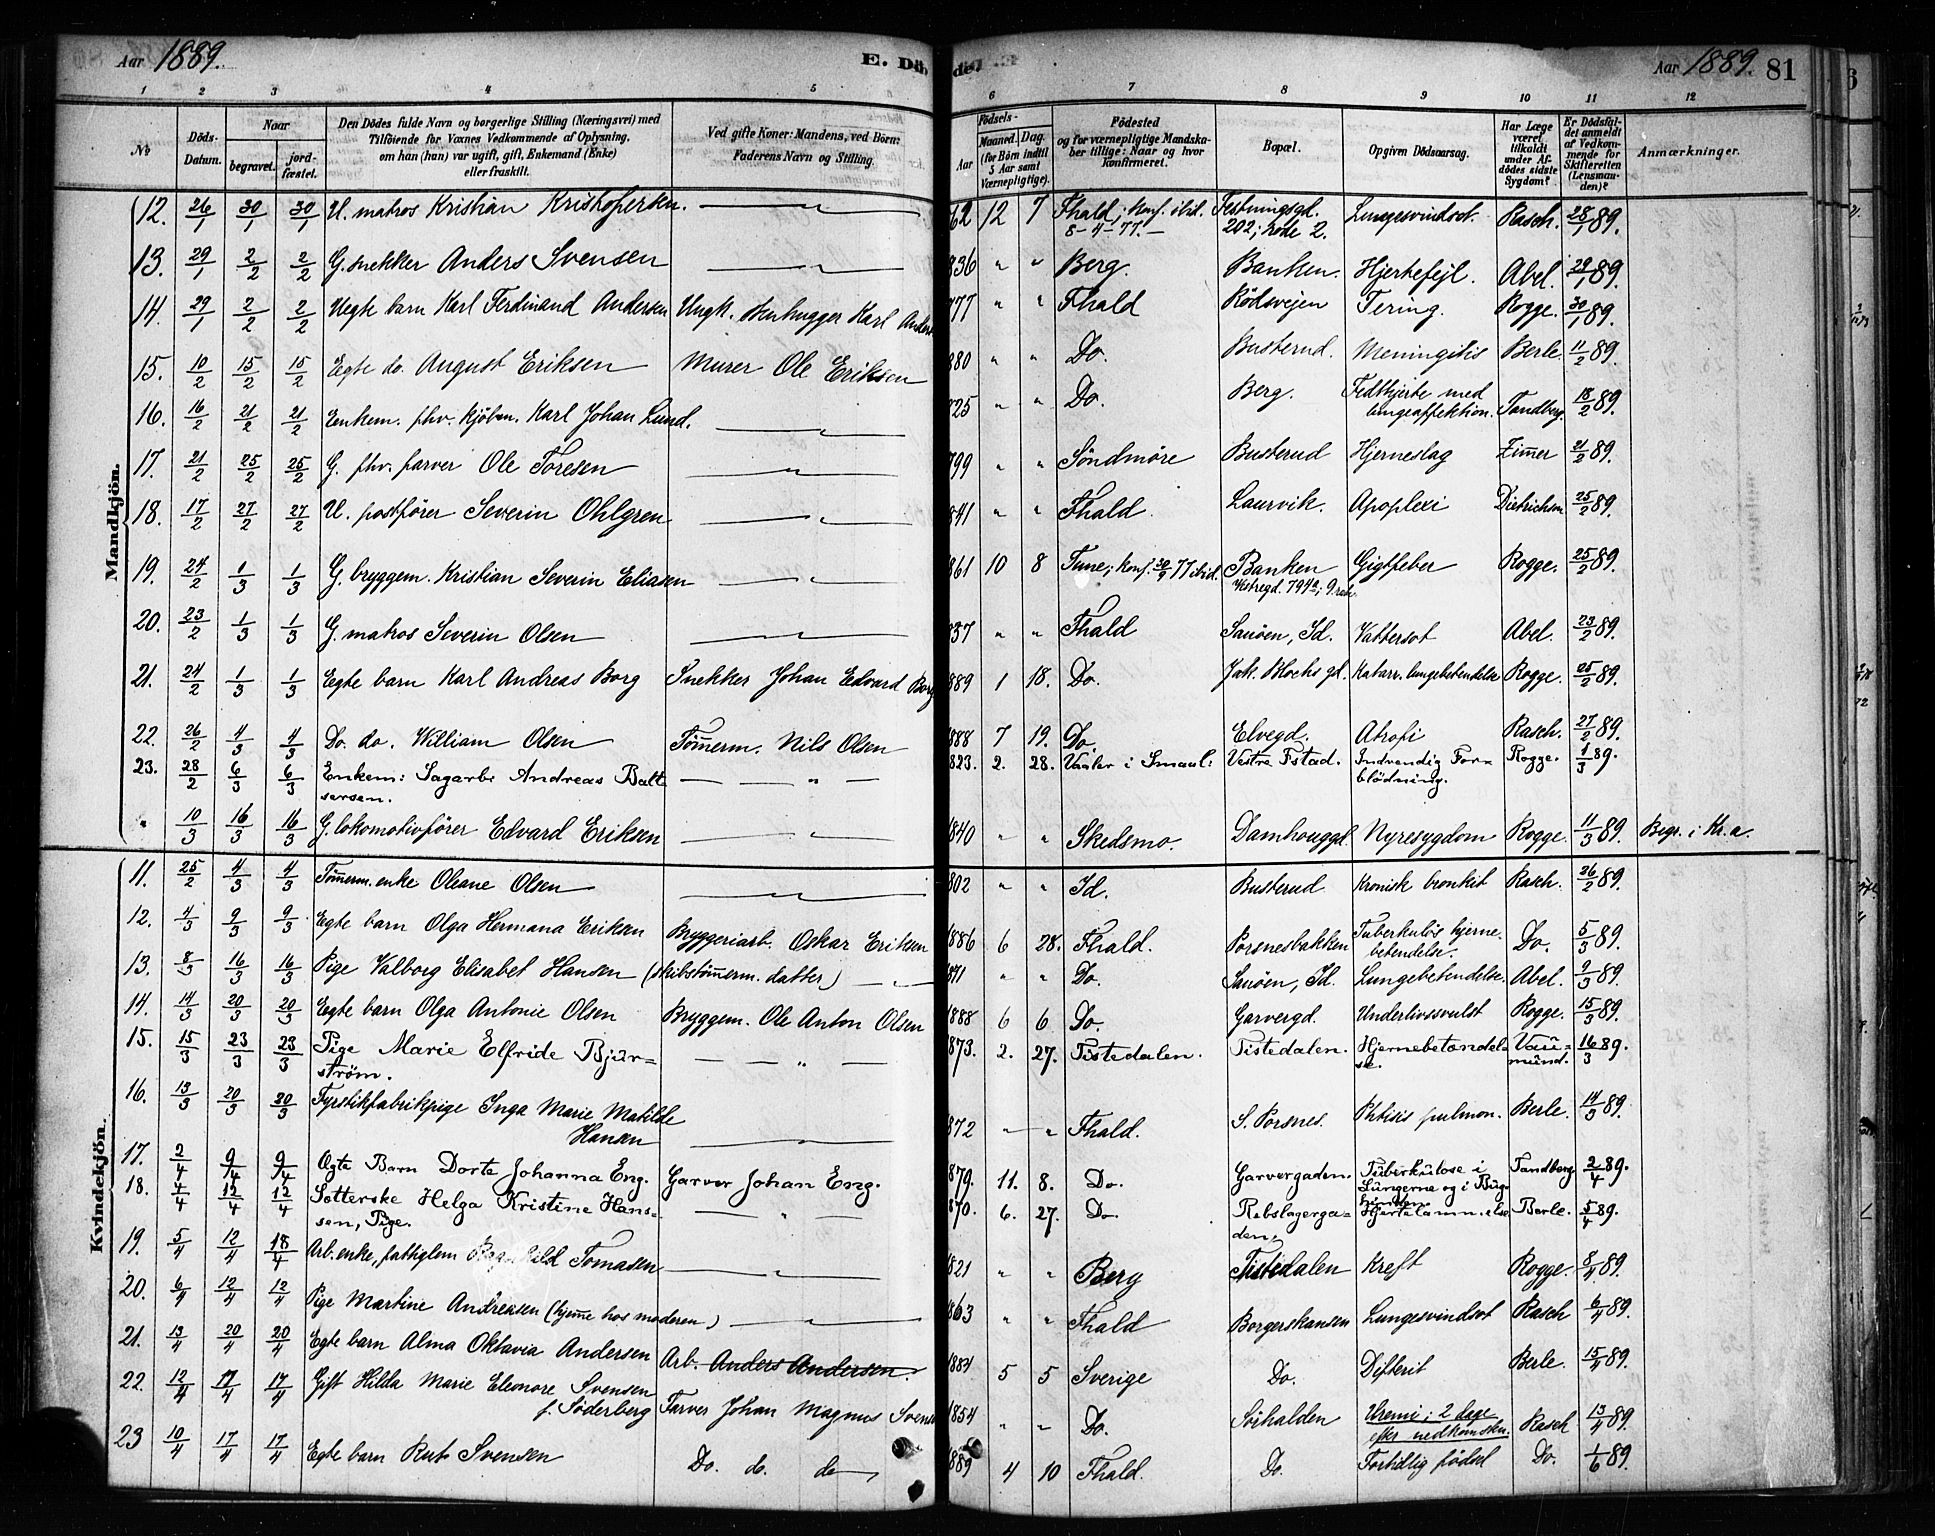 Aar 1889. E. Döb de Aar 1889. 81
1 2 3 4 5 6 7 8 9 10 11 12
No Döds-Datum. Naar begravet. jord-fæstet. Den Dödes fulde Navn og borgerlige Stilling (Næringsvei) med Tilföiende for Voxnes Vedkommende af Oplysning, om han (hun) var ugift, gift, Enkemand (Enke) eller fraskilt. Ved gifte Koner: Mandens, ved Börn: Faderens Navn og Stilling. Födsels- Aar Maaned. Dag. (for Börn indtil 5 Aar samt Værnepligtige). Födested og for værnepligtige Mandskaber tillige: Naar og hvor Konfirmeret. Bopæl. Opgiven Dödsaarsag. Har Læge været tilkaldt under Afdödes sidste Sygdom? Er Dödsfaldet anmeldt af Vedkommende for Skifteretten (Lensmanden)? Anmærkninger.
Mandkjön.
12. 26/1 30/1 30/1 U. matros Kristian Kristofersen. 62 12 7 Fhald; konf. ibid. 8-4-77. Festningsgd. 202; rode 2. Lungesvindsot. Rasch. 28/1 89.
13. 29/1 2/2 2/2 G. snekker Anders Svensen 836 " " Berg. Banken. Hjertefejl. Abel. 29/1 89.
14. 29/1 2/2 2/2 Uegte barn Karl Ferdinand Andersen Ungk. stenhugger Karl Anders 877 " " Fhald Rödsvejen Tering. Rogge. 30/1 89.
15. 10/2 15/2 15/2 Egte do. August Eriksen Murer Ole Eriksen 880 " " Do. Busterud. Meningitis Berle. 11/2 89.
16. 16/2 21/2 21/2 Enkem. fhv. kjöbm. Karl Johan Lund. 825 " " Do. Berg. Fedthjerte med lungeaffektion. Tandberg. 18/2 89.
17. 21/2 25/2 25/2 G. fhv. farver Ole Toresen 799 " " Söndmöre Busterud Hjerneslag Zimmer 21/2 89.
18. 17/2 27/2 27/2 U. postförer Severin Ohlgren 841 " " Fhald. Laurvik. Apoplexi Dietrichsen 25/2 89.
19. 24/2 1/3 1/3 G. bryggem. Kristian Severin Eliasen 861 10 8 Tune; konf. 30/9 77 ibid. Banken Vestregd. 794a; 9. rode. Gigtfeber Rogge. 25/2 89.
20. 23/2 1/3 1/3 G. matros Severin Olsen 837 " " Fhald Sauöen, Id. Vattersot Abel. 23/2 89.
21. 24/2 1/3 1/3 Egte barn Karl Andreas Borg Snekker Johan Edvard Borg 889 1 18. Do. Jak. Blochs gd. Katarr. lungebetendelse Rogge. 25/2 89.
22. 26/2 4/3 4/3 Do. do. William Olsen Tömmerm. Nils Olsen 1888 7 19. Do. Elvegd. Atrofi Rasch. 27/2 89.
23. 28/2 6/3 6/3 Enkem: Sagarb: Andreas Balt sersen. 1823. 2. 28. Vaaler i Smaal: Vestre Fstad. Indvendig Forblödning. Rogge. 1/3 89.
" 10/3 16/3 16/3 G. lokomotivförer Edvard Eriksen 1840 " " Skedsmo. Damhouggd. Nyresygdom Rogge. 11/3 89. Begr. i Kr.a.
Kvindekjön.
11. 25/2 4/3 4/3 Tömmerm. enke Oleane Olsen 802 " " Id. Busterud Kronisk bronkit Rasch. 26/2 89.
12. 4/3 9/3 9/3 Egte barn Olga Hermana Eriksen Bryggeriarb. Oskar Eriksen 1886 6 28. Fhald. Porsnesbakken Tuberkulös hjernebetendelse. Do. 5/3 89.
13. 8/3 16/3 16/3 Pige Valborg Elisabet Hansen (skibstömmerm. datter) 871 " " Do. Sauöen, Id. Lungebetendelse. Abel. 9/3 89.
14. 14/3 20/3 20/3 Egte barn Olga Antonie Olsen Bryggem. Ole Anton Olsen 1888 6 6 Do. Garvergd. Underlivssvulst Rogge. 15/3 89.
15. 15/3 23/3 23/3 Pige Marie Elfride Bjurström. 1873. 2. 27. Tistedalen. Tistedalen. Hjernebetændelse. Vaumund. 16/3 89.
16. 13/3 20/3 20/3 Fyrstikfabrikpige Inga Marie Matilde Hansen 872 " " Fhald. S. Porsnes. Phtisis pulmon. Berle. 14/3 89.
17. 2/4 9/4 9/4 Ægte Barn Dorte Johanna Eng. Garver Johan Eng. 1879. 11. 8. Do. Garvergaden. Tuberkulose i Lungerne og i Bughinden Tandberg 2/4 89.
18. 4/4 12/4 12/4 Sotterske Helga Kristine Hanssen, Pige. 1870. 6. 27. Do Rebslagergaden, Hjertelammelse Berle. 5/4 89.
19. 5/4 12/4 18/4 Arb. enke, fattiglem Ragnhild Tomasen 1821 " " Berg Tistedalen Kreft Rogge. 8/4 89.
20. 6/4 12/4 12/4 Pige Martine Andreasen (hjemme hos moderen) 1863 " " Fhald Borgerskansen Lungesvindsot Rasch 6/4 89.
21. 13/4 20/4 20/4 Egte barn Alma Oktavia Andersen Arb. Anders Andersen. 1884 5 5 Sverige Do. Difterit Berle. 15/4 89.
22. 12/4 17/4 17/4 Gift Hilda Marie Eleonore Svensen f. Söderberg Farver Johan Magnus Svens 1854 " " Do. Söihalden Uremi; 2 dage efter nedkomsten. Rasch 13/4 89.
23 10/4 17/4 17/4 Egte barn Rut Svensen Do. do. do 1889 4 10 Fhald. Do. Fortidlig födsel Do. 1/6 89.